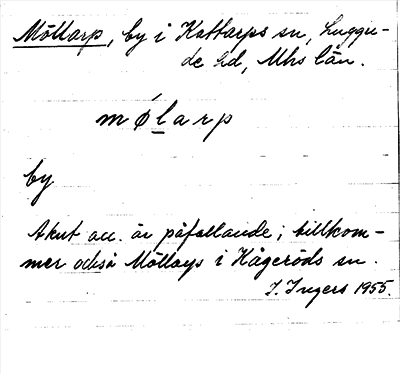 Möllarp, by i Kattarps sn, Luggu-
de hd, Mhs län.
mǿlarp
by
Akut acc. är påfallande; tillkom-
mer också Möllarps i Kågeröds sn.
I. Ingers 1955.